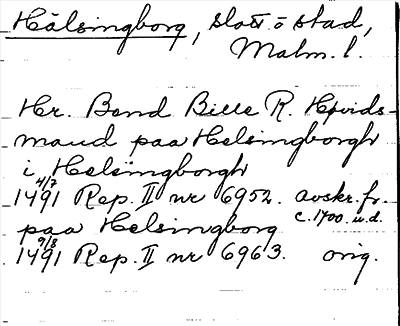 Hälsingborg, slott o stad,
Malm. l.
Hr. Bend Bille R. Høvids-
mand paa Helsingborgh
i Helsingborgh
4/7
1491 Rep. II nr 6952. avskr. fr.
c. 1700 u.d.
paa Helsingborg
9/8
1491 Rep. II nr 6963. orig.